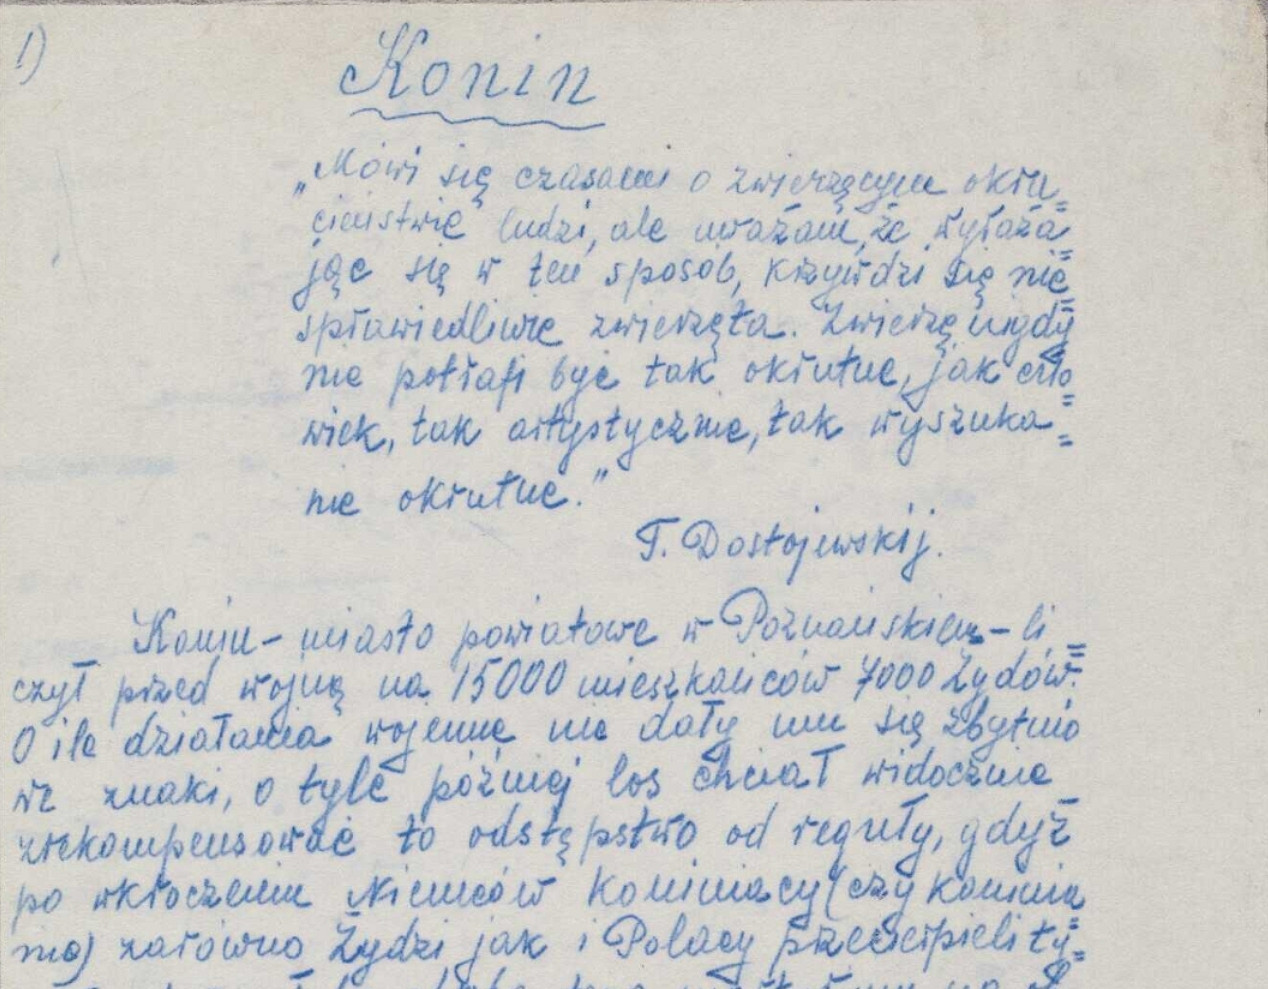 1)
Konin
„Mówi się czasami o zwierzęcym okru=
cieństwie ludzi, ale uważam, że wyraża=
jąc się w ten sposób, krzywdzi się nie=
sprawiedliwie zwierzęta. Zwierzę nigdy
nie potrafi być tak okrutne, jak czło=
wiek, tak artystycznie, tak wyszuka=
nie okrutne."
T. Dostojewskij.
Konin - miasto powiatowe w Poznańskiem - li=
czył przed wojną na 15000 mieszkańców 7000 Żydów.
O ile działania wojenne nie dały mu się zbytnio
we znaki, o tyle później los chciał widocznie
zrekompensować to odstępstwo od reguły, gdyż
po wkroczeniu Niemców Koniniacy (czy koninia=
nie) zarówno Żydzi jak i Polacy przecierpieli ty=